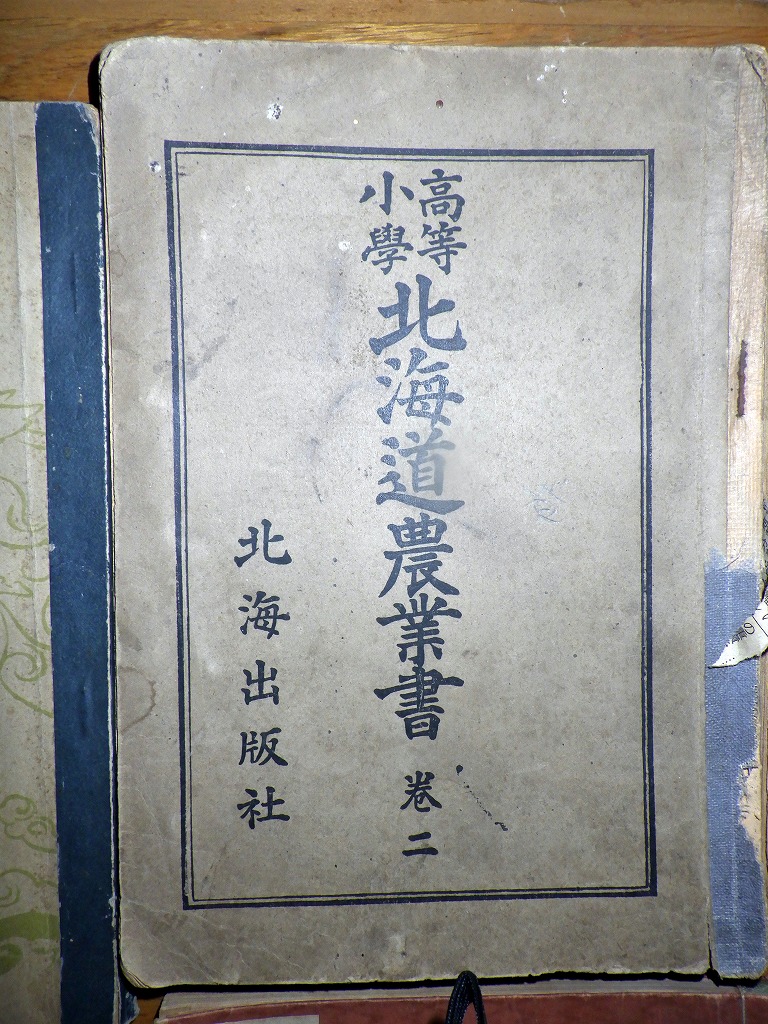 高等
小學
北海道農業書 卷二
北海出版社